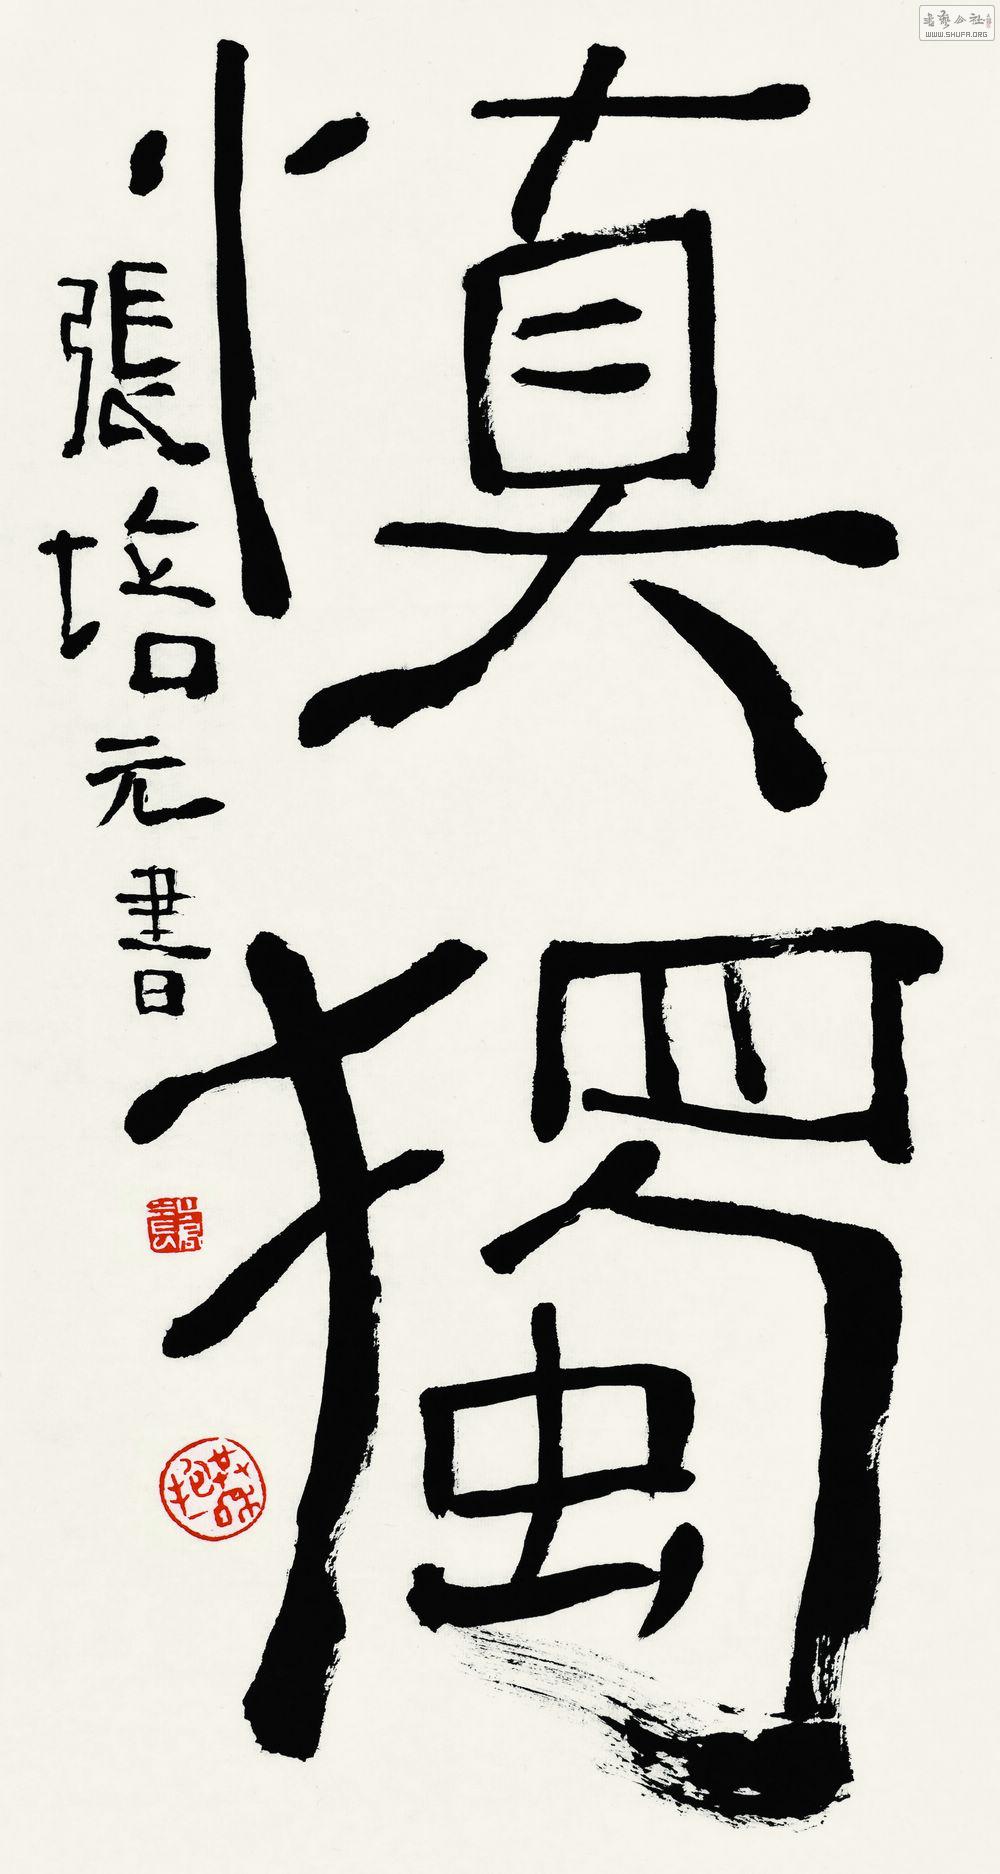 慎獨
張培元書
書藝公社
WWW.SHUFA.ORG